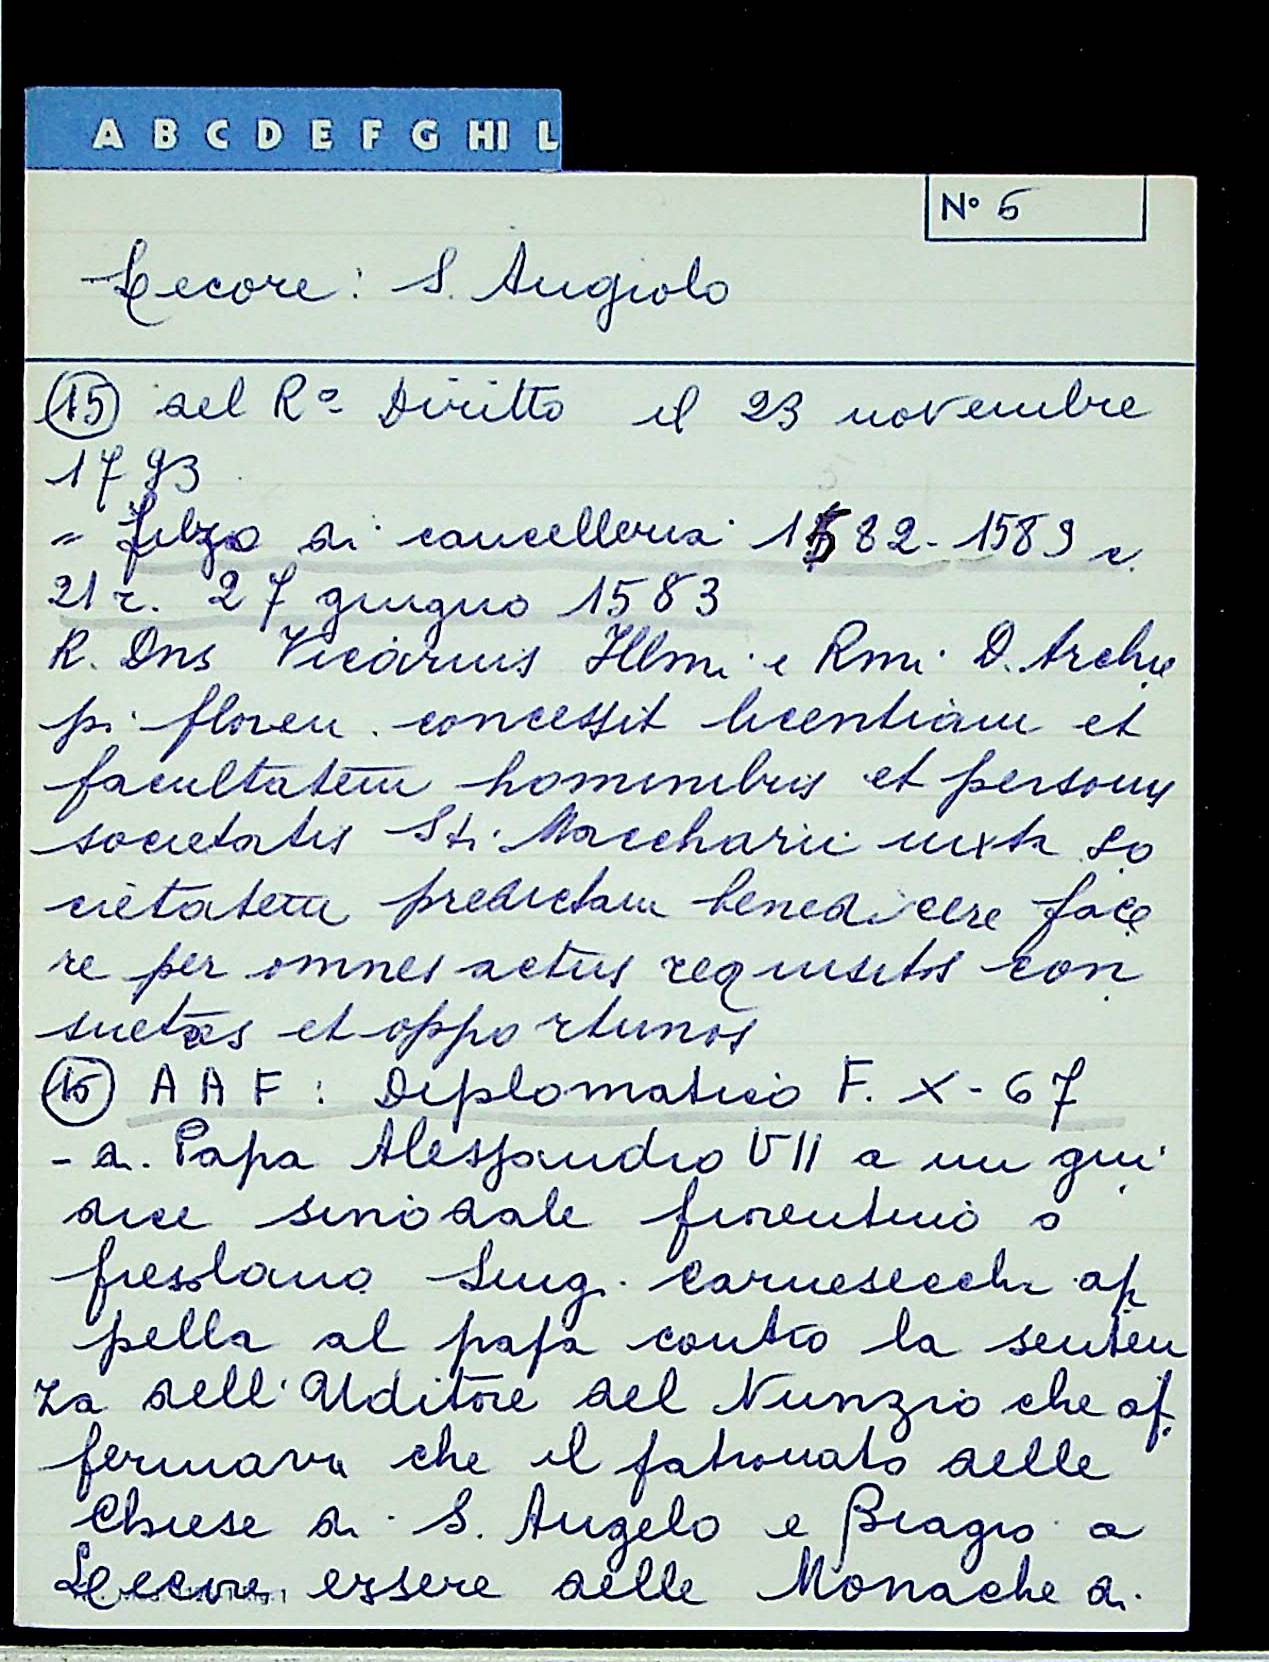 A B C D E F G HI L
N° 5
Lecore: S. Angiolo
(15) del Rº Diritto il 23 novembre
1793
= filza di cancelleria 1582-1589 c.
21 r. 27 giugno 1583
R. Dns Vicarius Illmi e Rmi D. Archie
pi floren. concessit licentiam et
facultatem hominibus et personis
societatis Sti Maccharii iuxta so
cietatem predictam benedicere face
re per omnes actus requisitos con
suetos et opportunos
(16) A A F : Diplomatico F. X-67
- a. Papa Alessandro VII a un giu
dice sinodale fiorentino o
fiesolano Carnesecchi ap
pella al papa contro la senten
za dell'Uditore del Nunzio che af
fermava che il patronato delle
Chiese di S. Angelo e Biagio a
Lecore essere delle Monache di